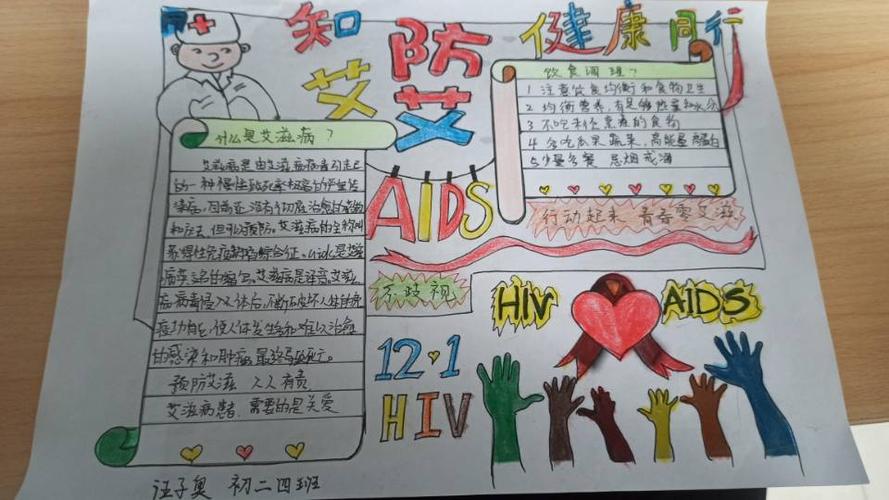 知艾防艾 健康同行
什么是艾滋病？
艾滋病是由艾滋病病毒引起
的一种慢性致死率极高的严重传
染病，目前还没有彻底治愈的药物
和方法，但可以预防。艾滋病的全称叫
获得性免疫缺陷综合征。
病毒侵入人体后，不断破坏人体的免
疫功能，使人体发生多种难以治愈
的感染和肿瘤，最终导致死亡。
预防艾滋 人人有责
艾滋病患者 需要的是关爱
饮食调理？
1 注意饮食均衡和食物卫生
2 均衡营养，有足够热量和水分
3 不吃未经煮熟的食物
4 多吃瓜果 蔬菜，高能量 高蛋白
5 少量多餐 忌烟 戒酒
行动起来 青春零艾滋
AIDS
不歧视
HIV AIDS
12·1
HIV
初二四班